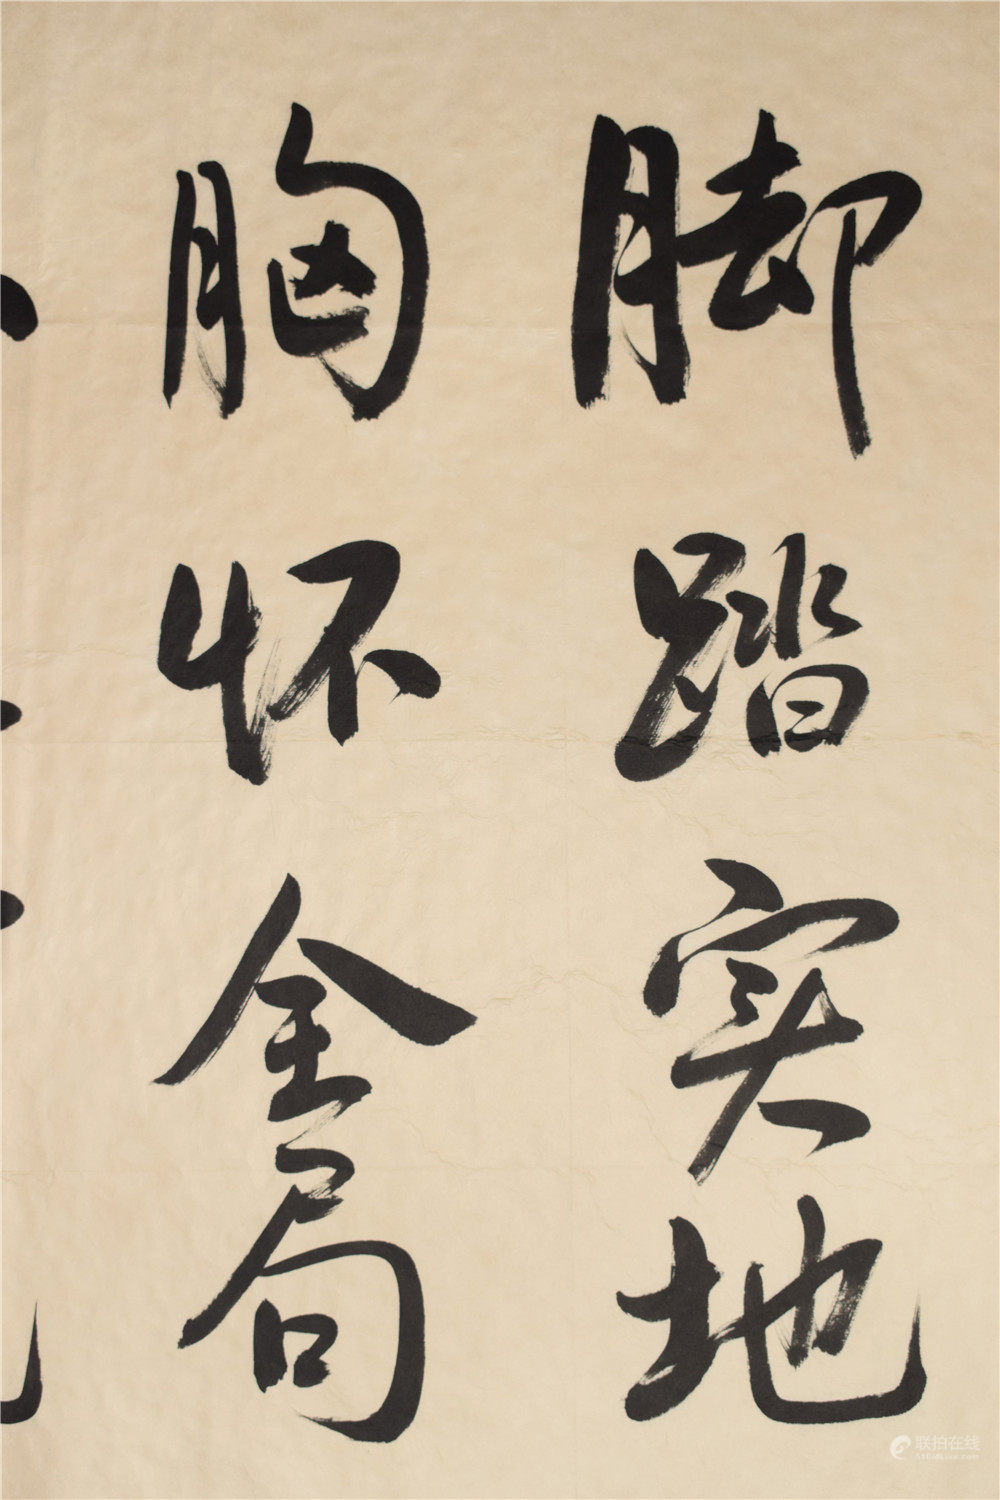 脚踏实地
胸怀全局
联拍在线